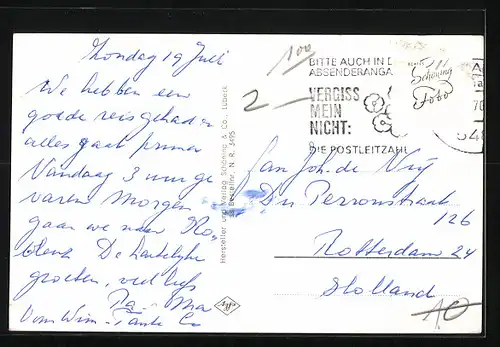 Zondag 19 Juli
We hebben een
goede reis gehad en
alles gaat prima
Vandaag 3 uur ge
varen Morgen
gaan we naar Ko
blenz De hartelijke
groeten, veel liefs
Pa - Ma
Oom Wim - Tante Co
100
2
BITTE AUCH IN D
ABSENDERANGA
VERGISS
MEIN
NICHT:
DIE POSTLEITZAHL
Schöning
Foto
70
540
Hersteller und Verlag Schöning & Co., Lübeck
Bestellnr. N. R. 3495
Jan Joh. de Vrij
Du Perronstraat
126
Rotterdam 24
Holland
AO